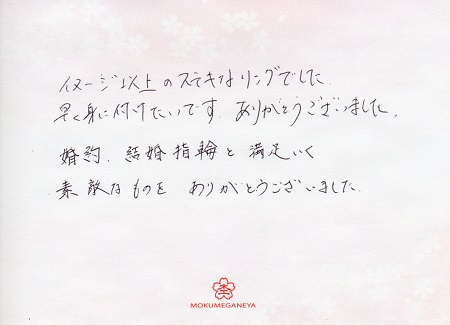 イメージ以上のステキなリングでした
早く身に付けたいです。ありがとうございました。
婚約、結婚指輪と満足いく
素敵なものを ありがとうございました.
MOKUMEGANEYA